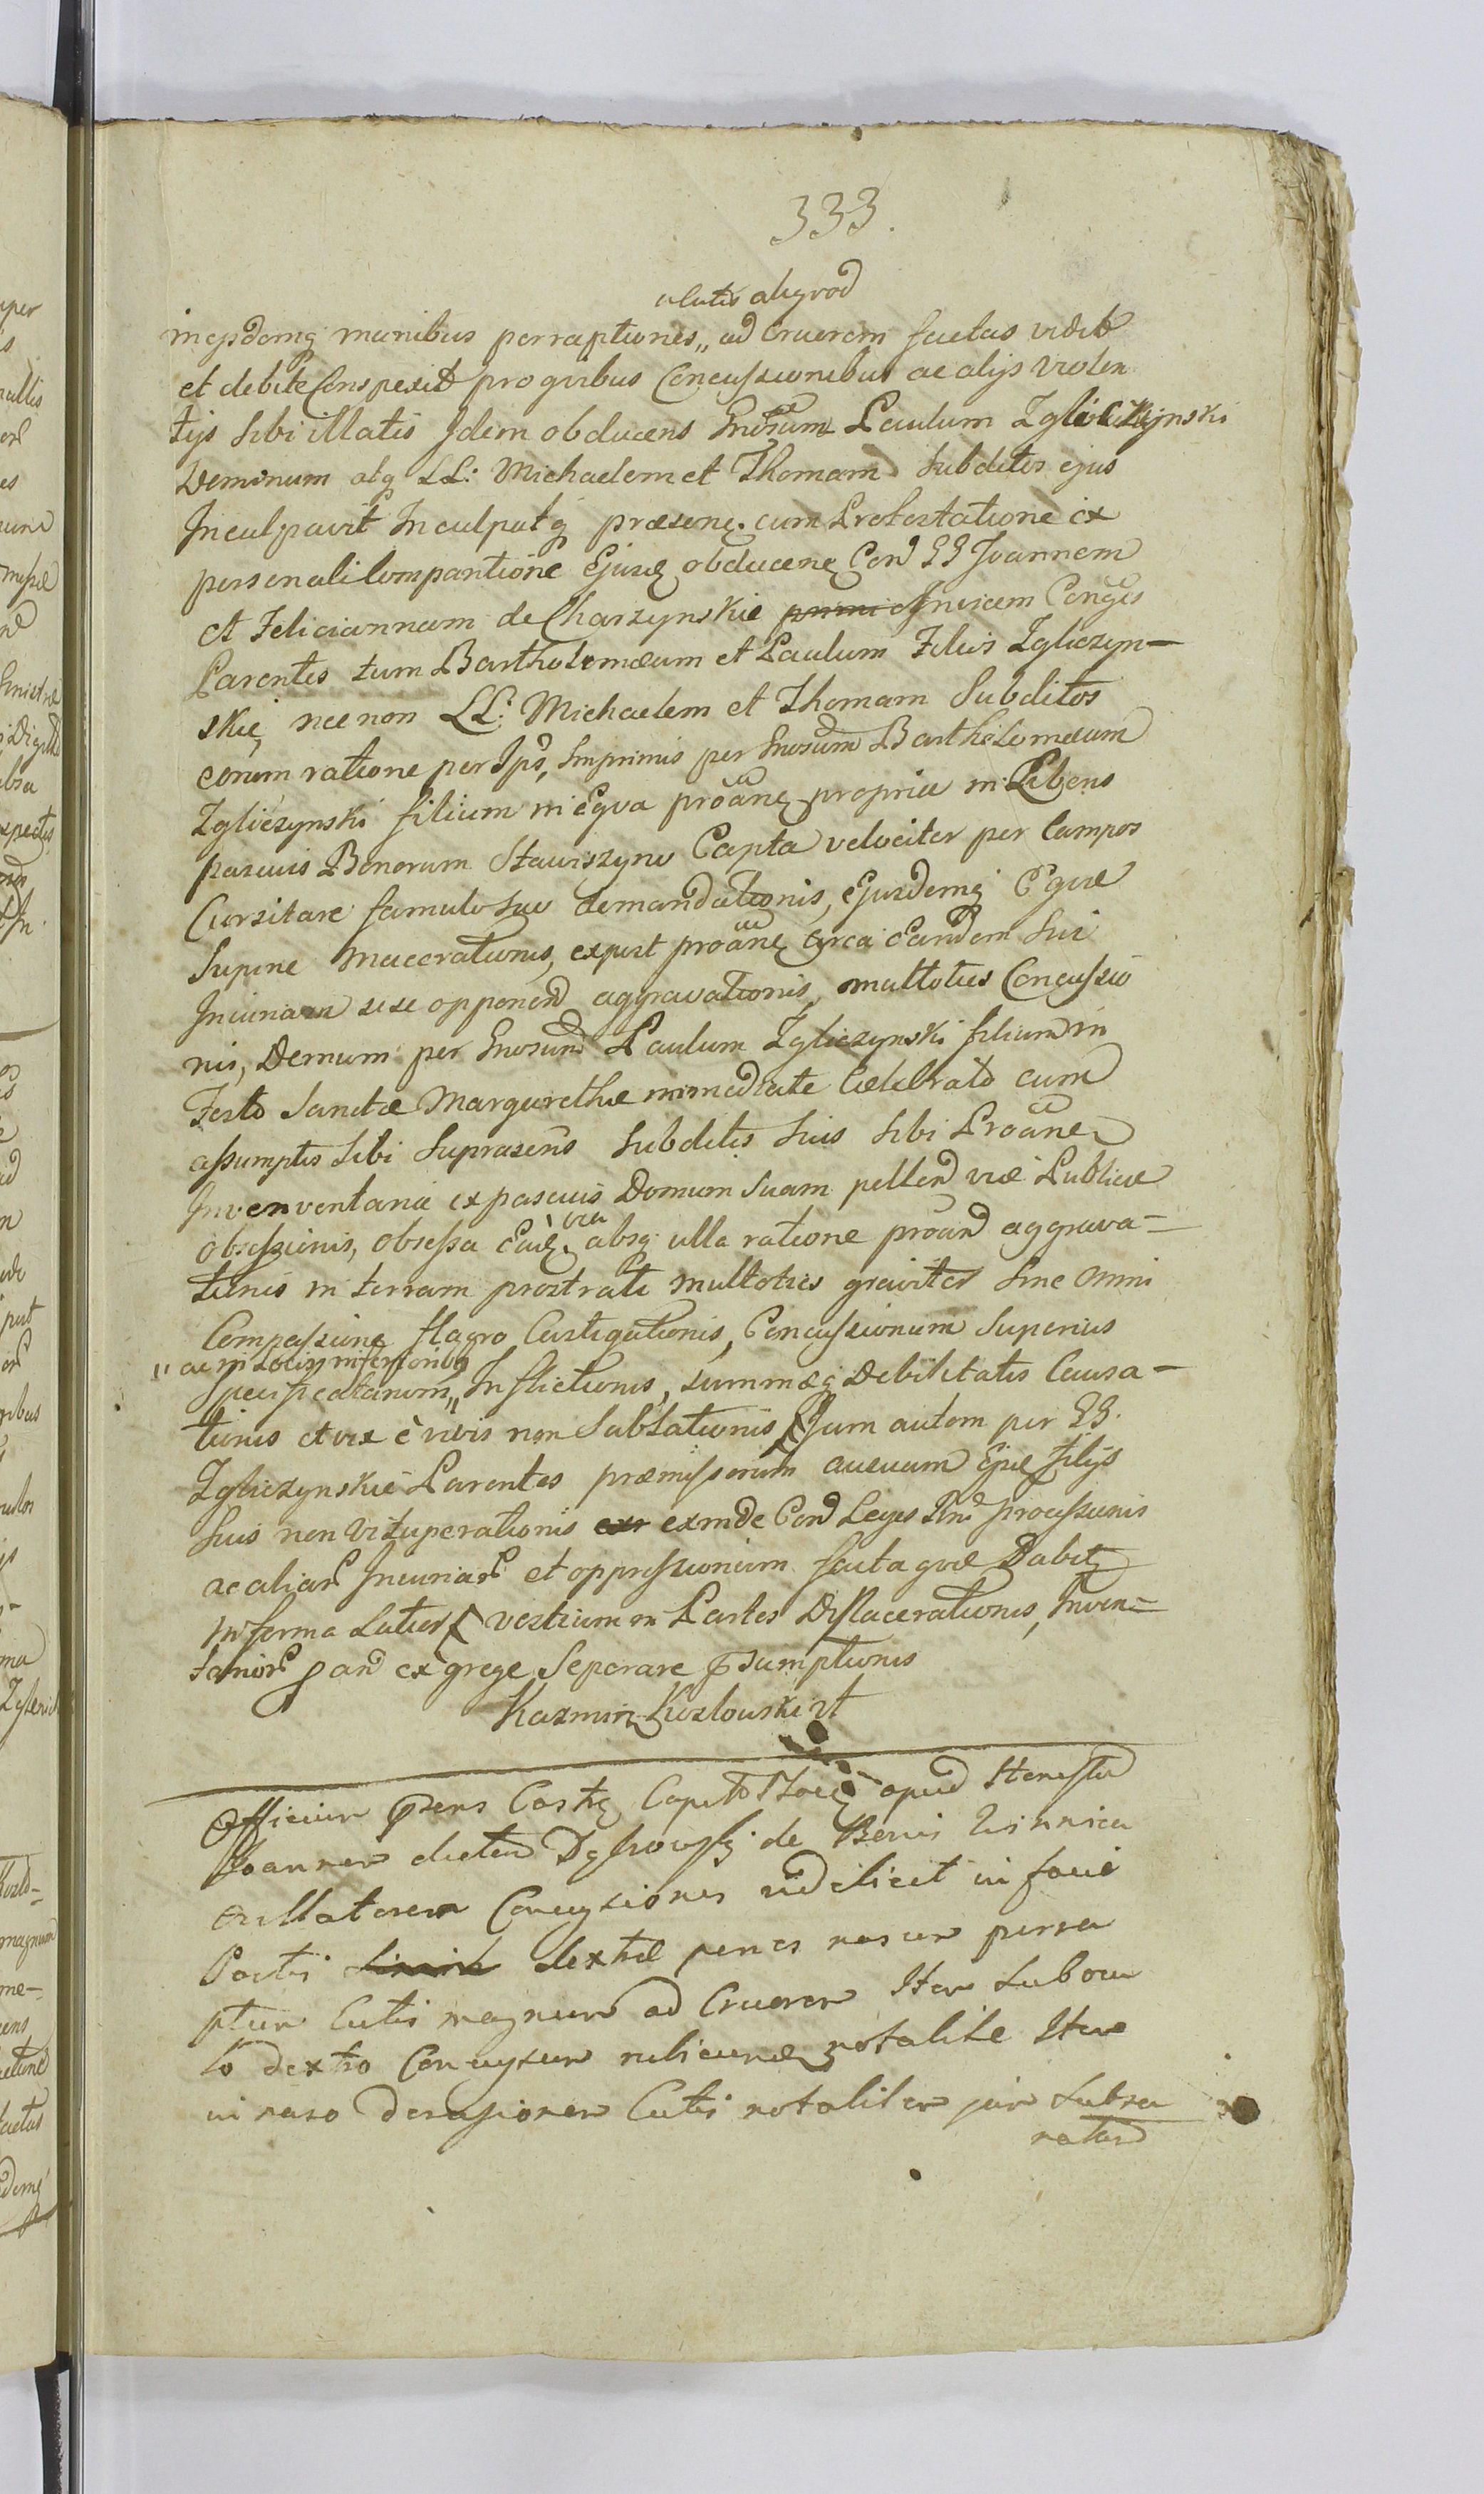 333.
cutis aliquod
in ejsdemq manibus perraptiones „ ad Cruorem factas vidit
et debite Conspexit pro quibus Concussionibus ac alijs violen
tijs sibi illatis Idem obducens Gnosum Paulum Zgliczynski
Dominum atq LL: Michaelem et Thomam Subditos ejus
Inculpavit Inculpatq praesenq cum Protestatione ex
personali Comparitione Ejusd obducenq Con GG Joannem
et Feliciannam de Charzynskie Invicem Conges
Parentes tum Bartholomaeum et Paulum Filios Zgliczyn-
skie, nec non LL: Michaelem et Thomam Subditos
eorum ratione per Ips, Imprimis per Gnosum Bartholomaeum
Zgliczynski filium in Equa proãnq propria in Libens
pascuis Bonorum Stawiszyno Capta velociter per Campos
Cursitare famulo suo demandationis, Ejusdemq Equae
Supine Macerationis, expost proãnq circa eandem sui
Injuriam sese opponend aggravationis, multoties Concussio
nis, Demum per Gnosum Paulum Zgliczynski filium in
Festo Sanctae Margarethae immediate Celebrato cum
assumptis sibi Suprascris Subditis suis sibi Proãnq
Inventaria ex pascuis Domum Suam pellend viae Publicae
Obsessionis, Obsessa Ead via absq ulla ratione proand aggrava-
tionis in terram prostrati multoties graviter sine omni
Compassione flagro Castigationis, Concussionum Superius
„ ac in locis inferiorib
specificatarum „ Inflictionis, summaeq Debilitatis Causa-
tionis et vix è vivis non Sublationis Tum autem per GG.
Zgliczynskie Parentes praemissorum Ejsd filijs
Suis non vituperationis exinde Con Leges Rni processionis
ac aliar Injuriar et oppressionum facta quae Dabit
in forma Latior vestium in Partes Dislacerationis, Inven-
tarior ex grege Separare psumptionis
Kazmirz Kozlowski
Officium psens Castr Capit apud
Joannem dictum de Bonis Winnica
Oblatorem Concussiones videlicet in facie
Parti dextrae penes nasum perra
ptum Cutis magnum ad Cruorem Item Subocu
lo dextro Concussum rubicund notabile Item
in naso derasionem Cutis notabilem jam Subsa
natam